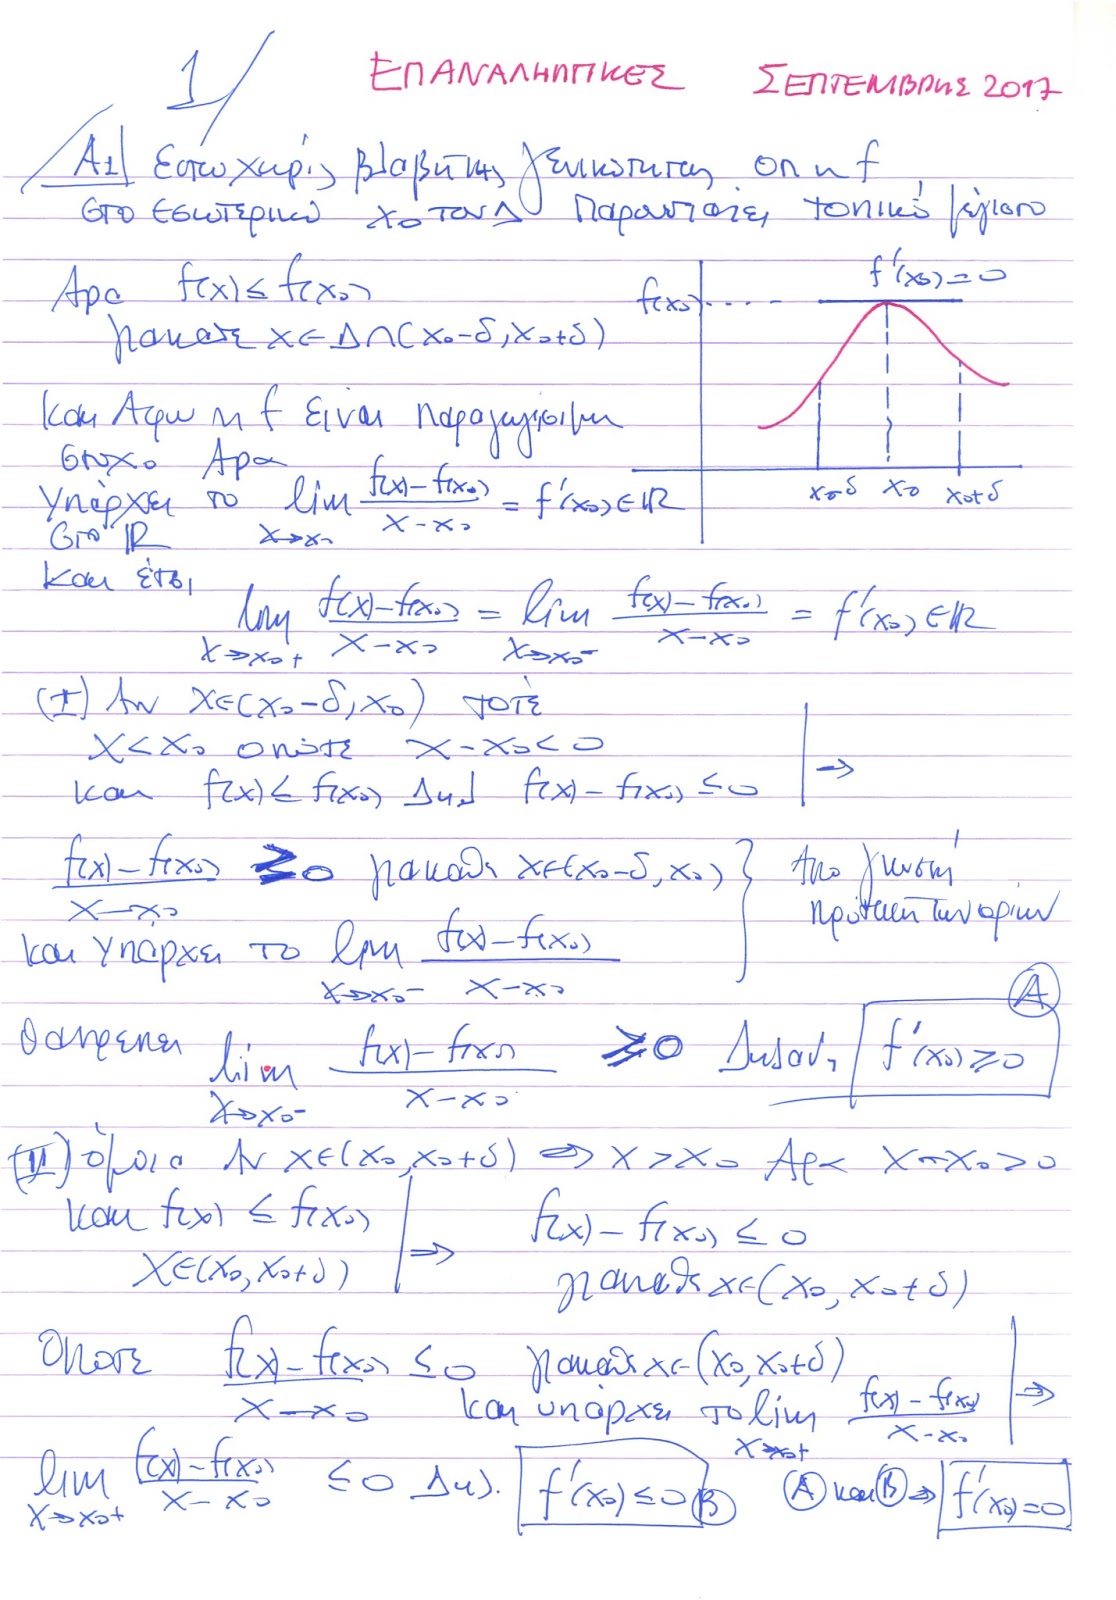 1/ ΕΠΑΝΑΛΗΠΤΙΚΕΣ ΣΕΠΤΕΜΒΡΗΣ 2017
Α1 Εστω χωρίς βλαβη της γενικοτητας οτι η f
στο εσωτερικό x₀ του Δ παρουσιάζει τοπικό μέγιστο
Αρα f(x) ≤ f(x₀)
για καθε x ∈ Δ∩(x₀-δ, x₀+δ)
f(x₀) f'(x₀)=0
x₀-δ x₀ x₀+δ
και Αφου η f είναι παραγωγισιμη
στο x₀ Αρα
Υπάρχει το lim x→x₀ (f(x)-f(x₀))/(x-x₀) = f'(x₀) ∈ ℝ
στο ℝ
και έτσι
lim x→x₀+ (f(x)-f(x₀))/(x-x₀) = lim x→x₀- (f(x)-f(x₀))/(x-x₀) = f'(x₀) ∈ ℝ
(I) Αν x∈(x₀-δ, x₀) τοτε
x<x₀ οποτε x-x₀<0
και f(x) ≤ f(x₀) Δηλ f(x)-f(x₀) ≤ 0 ⇒
(f(x)-f(x₀))/(x-x₀) ≥ 0 για καθε x∈(x₀-δ, x₀) } Απο γνωστή
πρόταση των ορίων
και Υπάρχει το lim x→x₀- (f(x)-f(x₀))/(x-x₀)
Θα πρεπει lim x→x₀- (f(x)-f(x₀))/(x-x₀) ≥ 0 Δηλαδη f'(x₀) ≥ 0 Ⓐ
(II) όμοια Αν x∈(x₀, x₀+δ) ⇒ x > x₀ Αρα x-x₀>0
και f(x) ≤ f(x₀) ⇒ f(x)-f(x₀) ≤ 0
x∈(x₀, x₀+δ) για καθε x∈(x₀, x₀+δ)
Οποτε (f(x)-f(x₀))/(x-x₀) ≤ 0 για καθε x∈(x₀, x₀+δ)
και υπάρχει το lim x→x₀+ (f(x)-f(x₀))/(x-x₀) ⇒
lim x→x₀+ (f(x)-f(x₀))/(x-x₀) ≤ 0 Δηλ. f'(x₀) ≤ 0 Ⓑ Ⓐ και Ⓑ ⇒ f'(x₀)=0